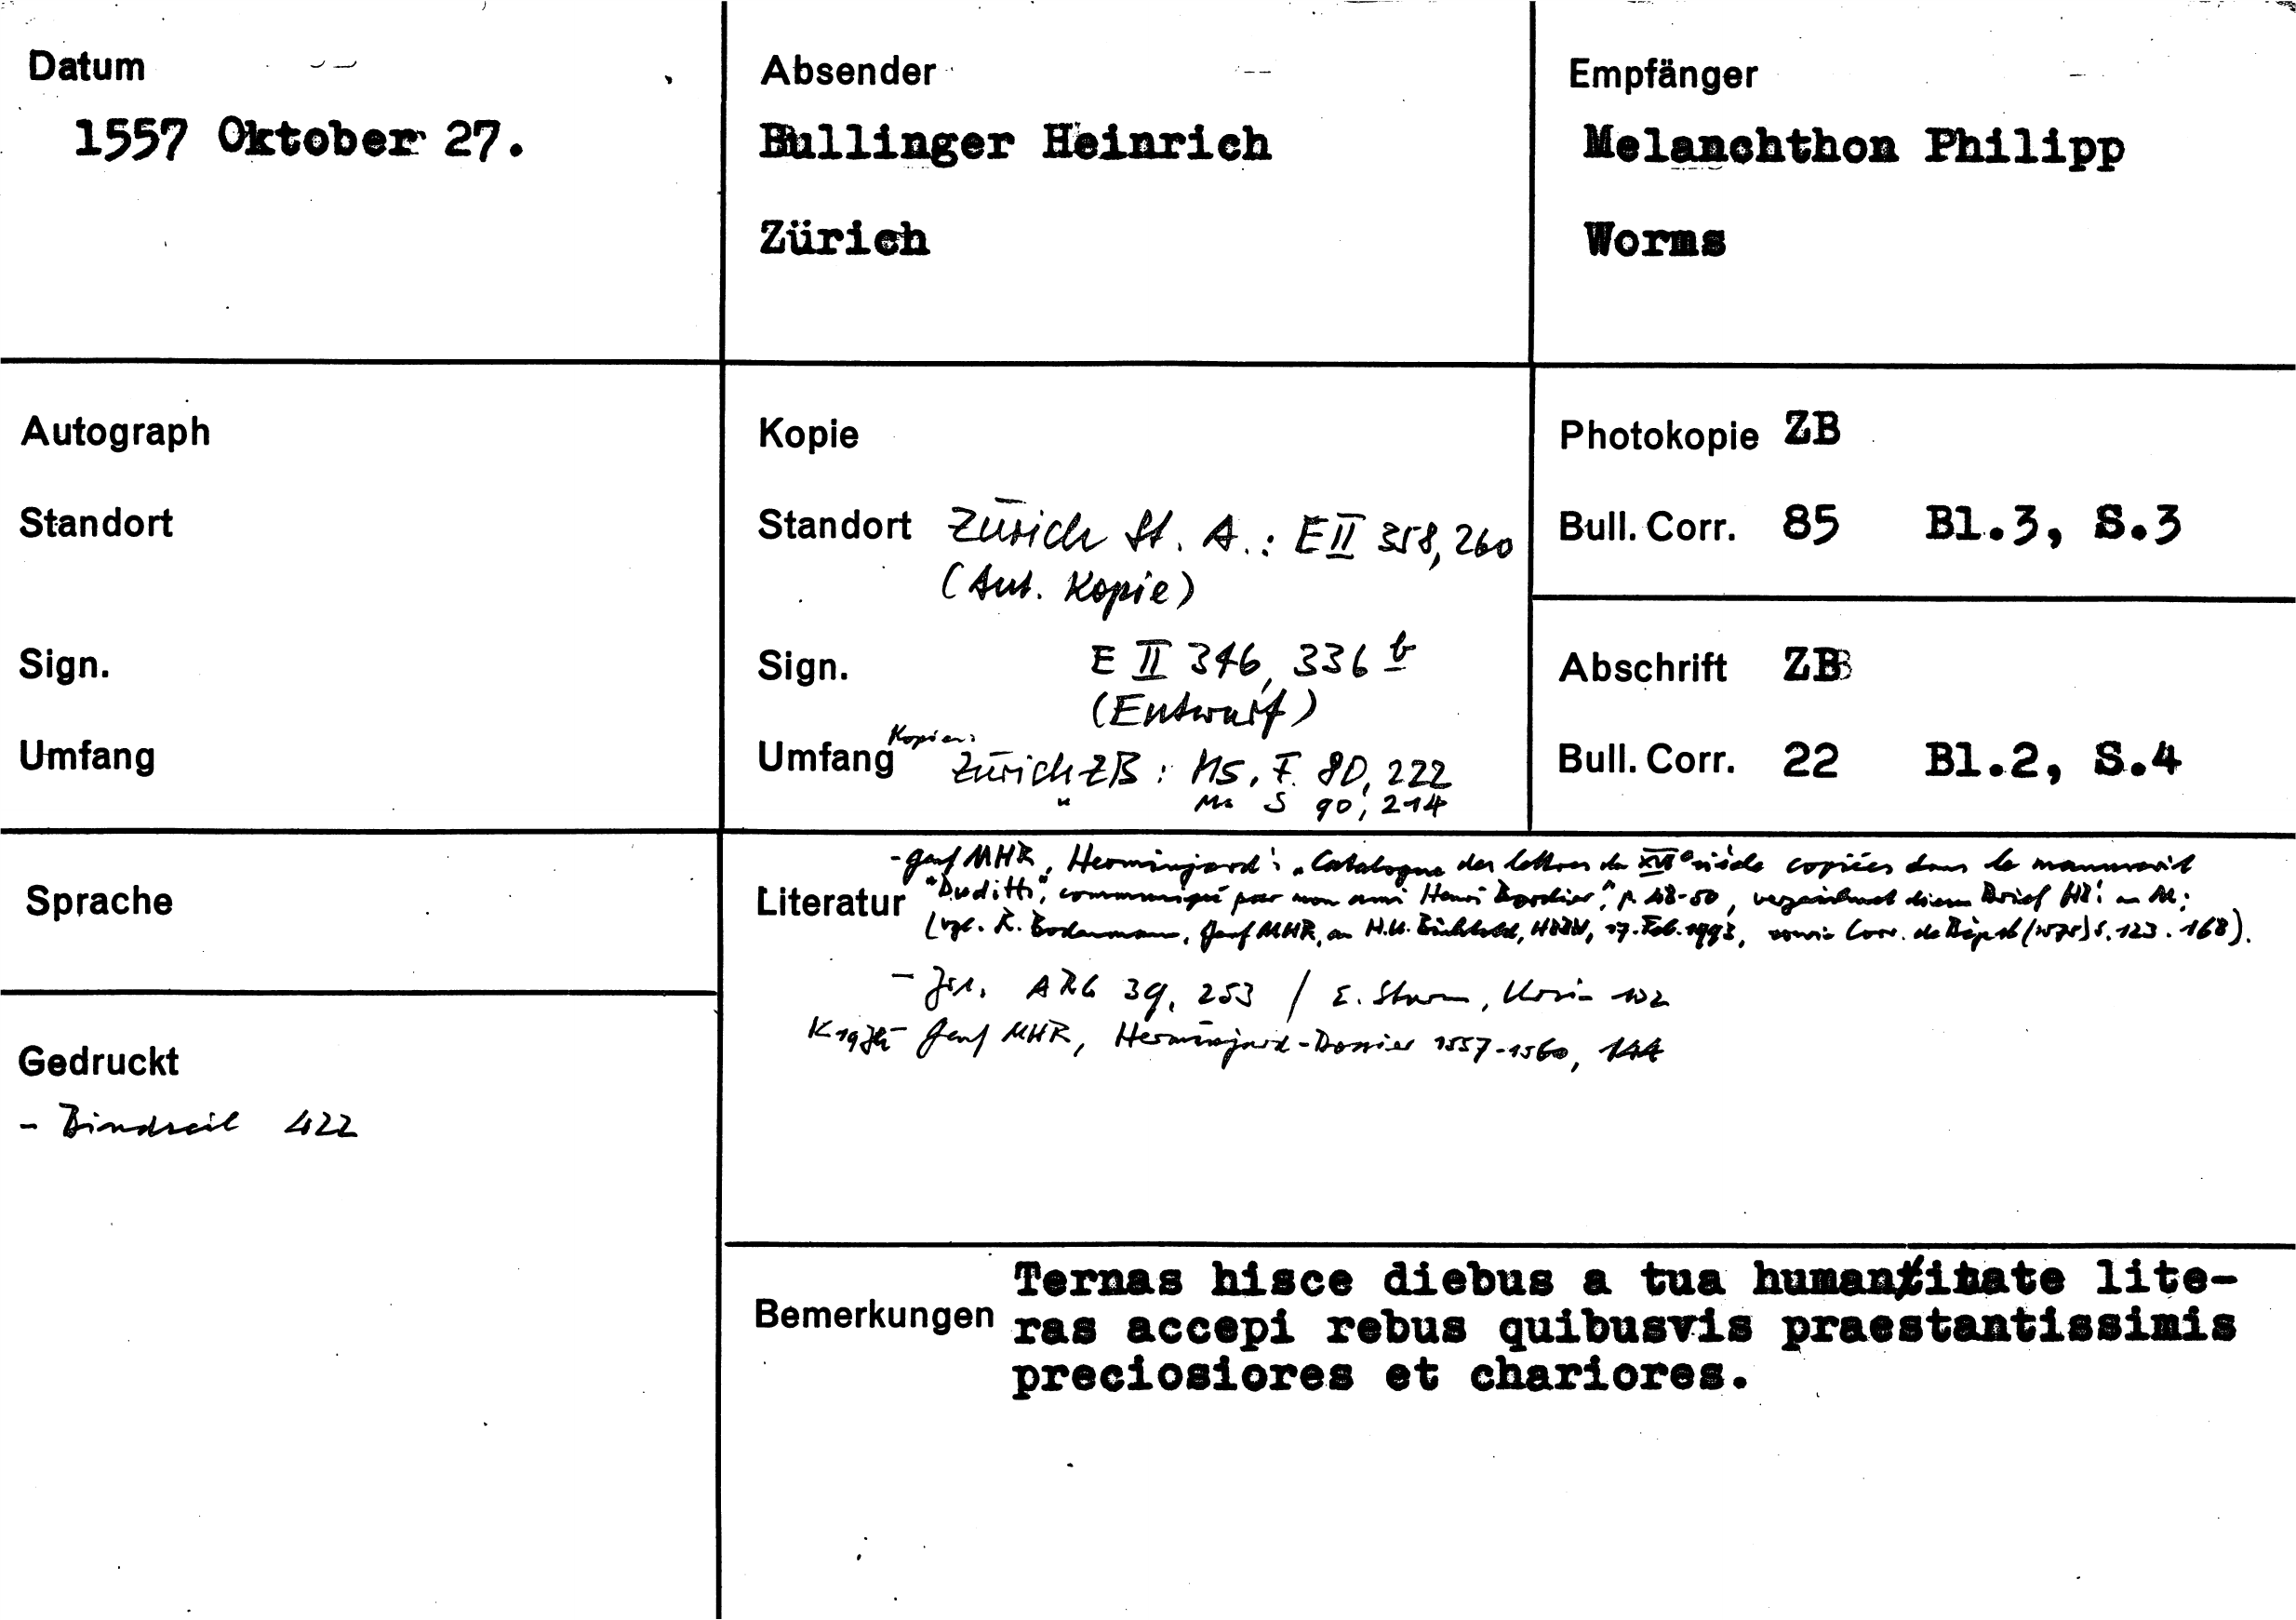 Datum
1557 Oktober 27.
Absender
Bullinger Heinrich
Zürich
Empfänger
Melanchthon Philipp
Worms
Autograph
Standort
Sign.
Umfang
Kopie
Standort Zürich St. A.: E II 358, 260
(Aut. Kopie)
Sign. E II 346, 336 b
(Entwurf)
Kopien:
Umfang Zürich ZB: Ms. F. 80, 222
" Ms S 90, 214
Photokopie ZB
Bull. Corr. 85 Bl.3, S.3
Abschrift ZB
Bull. Corr. 22 Bl.2, S.4
Sprache
Gedruckt
- Bindseil 422
- Genf MHR, Herminjard: "Catalogue des lettres du XVIe siècle copiées dans le manuscrit
Literatur "Duditth", communiqué par mon ami Henri Bordier", p. 48-50, verzeichnet diesen Brief HB's an M.;
(vgl. R. Bodenmann, Genf MHR, an H.U. Bächtold, HBBW, 17. Feb. 1993, sowie Corr. de Bèze 16 (1575) S. 123. 168).
- ARG 39, 253 / E. Sturm, 102
Genf MHR, Herminjard-Dossier 1557-1560, 144
Bemerkungen Ternas hisce diebus a tua humanitate lite-
ras accepi rebus quibusvis praestantissimis
preciosiores et chariores.